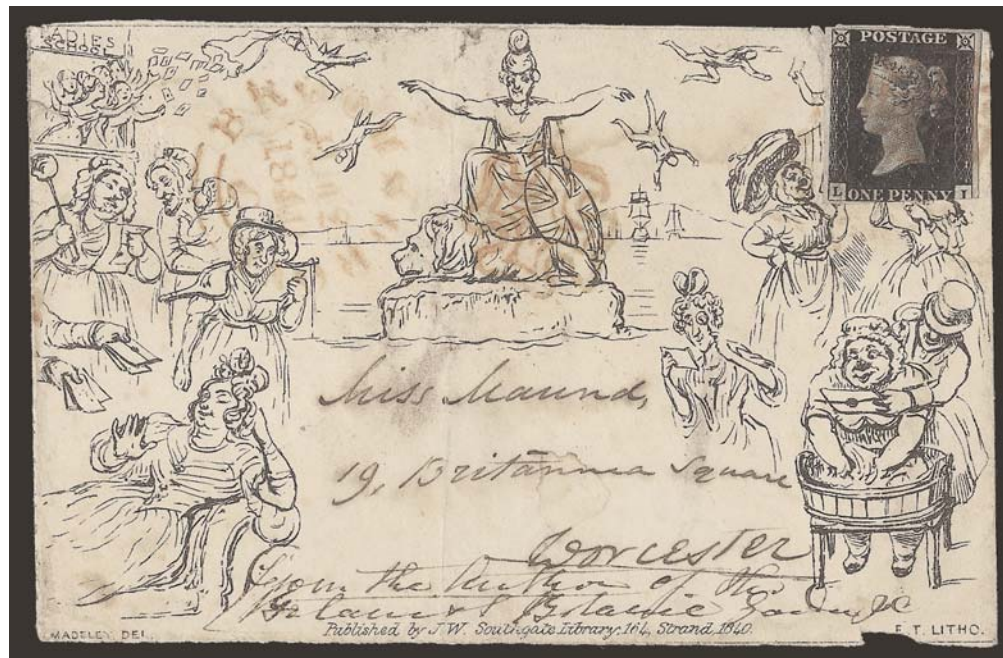 LADIES
SCHOOL
POSTAGE
L ONE PENNY I
Miss Maund,
19, Britannia Square
Worcester
From the Author of the
Botanic Garden &c
Published by J.W. Southgate Library, 164, Strand, 1840.
MADELEY DEL.
F. T. LITHO.